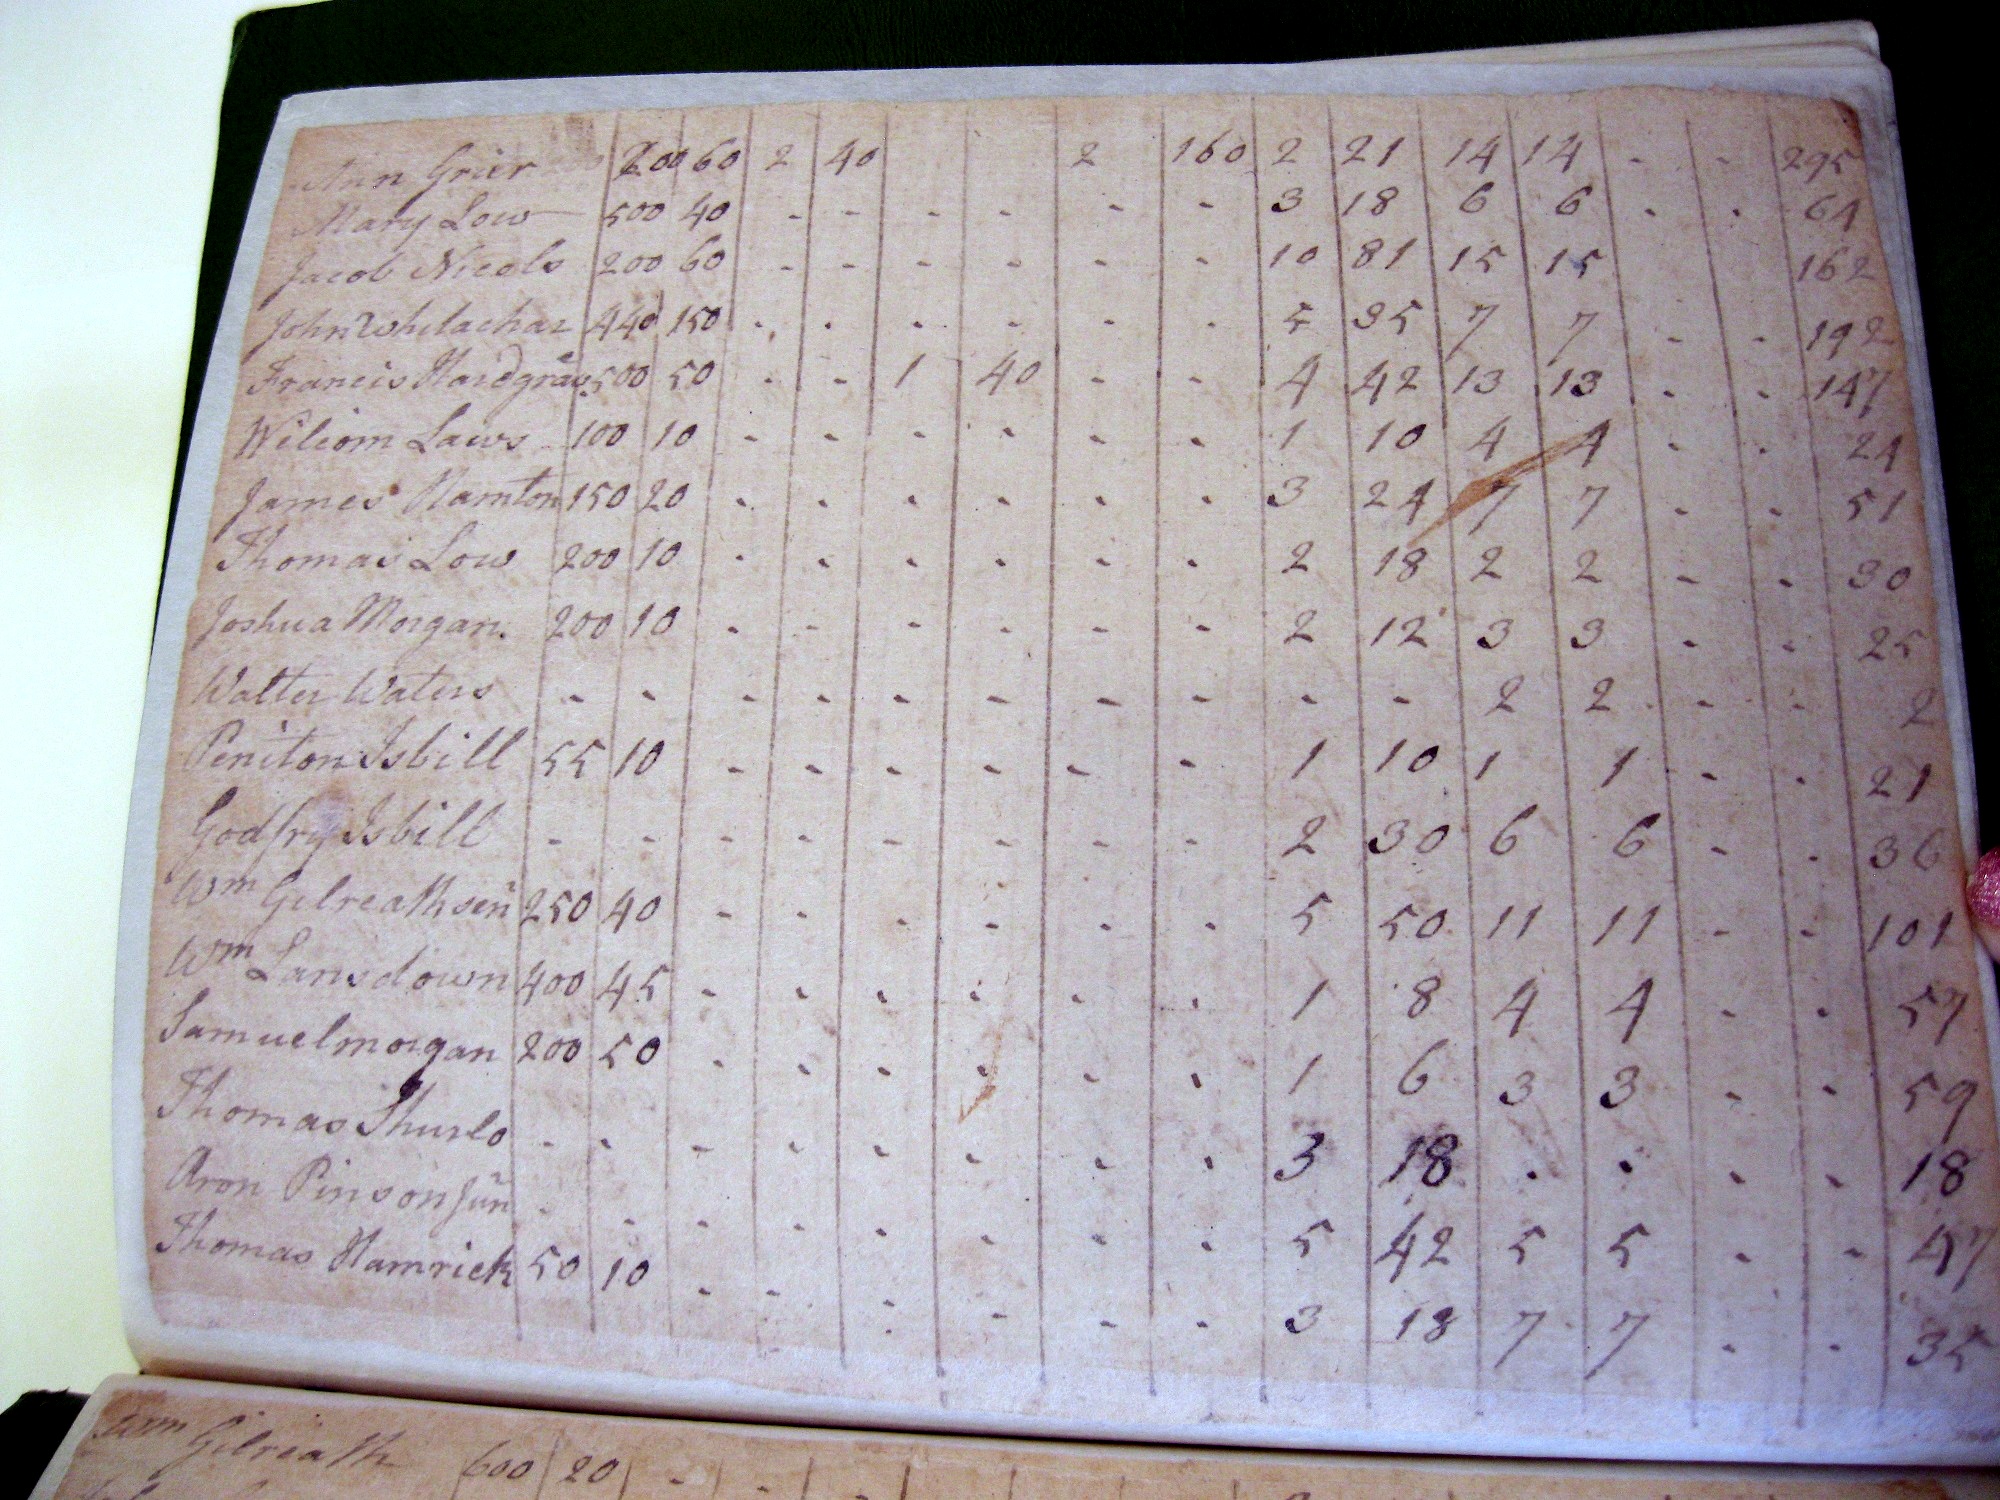 Ann Grier 200 60 2 40 2 160 2 21 14 14 - - 295
Mary Low 500 40 - - - - - - 3 18 6 6 - - 64
Jacob Nicols 200 60 - - - - - - 10 81 15 15 162
John Whitachar 440 150 - - - - - - 5 35 7 7 - - 192
Francis Hardgrav 500 50 - - 1 40 - - 4 42 13 13 - - 147
Wiliom Laws 100 10 - - - - - - 1 10 4 4 - - 24
James Hamton 150 20 - - - - - - 3 24 7 7 - - 51
Thomas Low 200 10 - - - - - - 2 18 2 2 - - 30
Joshua Morgan. 200 10 - - - - - - 2 12 3 3 - - 25
Walter Waters - - - - - - - - - - 2 2 - - 2
Peniton Isbill 55 10 - - - - - - 1 10 1 1 - - 21
Godfry Isbill - - - - - - - - 2 30 6 6 - - 36
Wm Gilreath senr 250 40 - - - - - - 5 50 11 11 - - 101
Wm Lansdown 400 45 - - - - - - 1 8 4 4 - - 57
Samuel morgan 200 50 - - - - - - 1 6 3 3 - - 59
Thomas Thurlo - - - - - - - - 3 18 - - - - 18
Aron Pinson Junr - - - - - - - - 5 42 5 5 - - 47
Thomas Hamrick 50 10 - - - - - - 3 18 7 7 - - 35
Wm Gilreath 600 20 - -